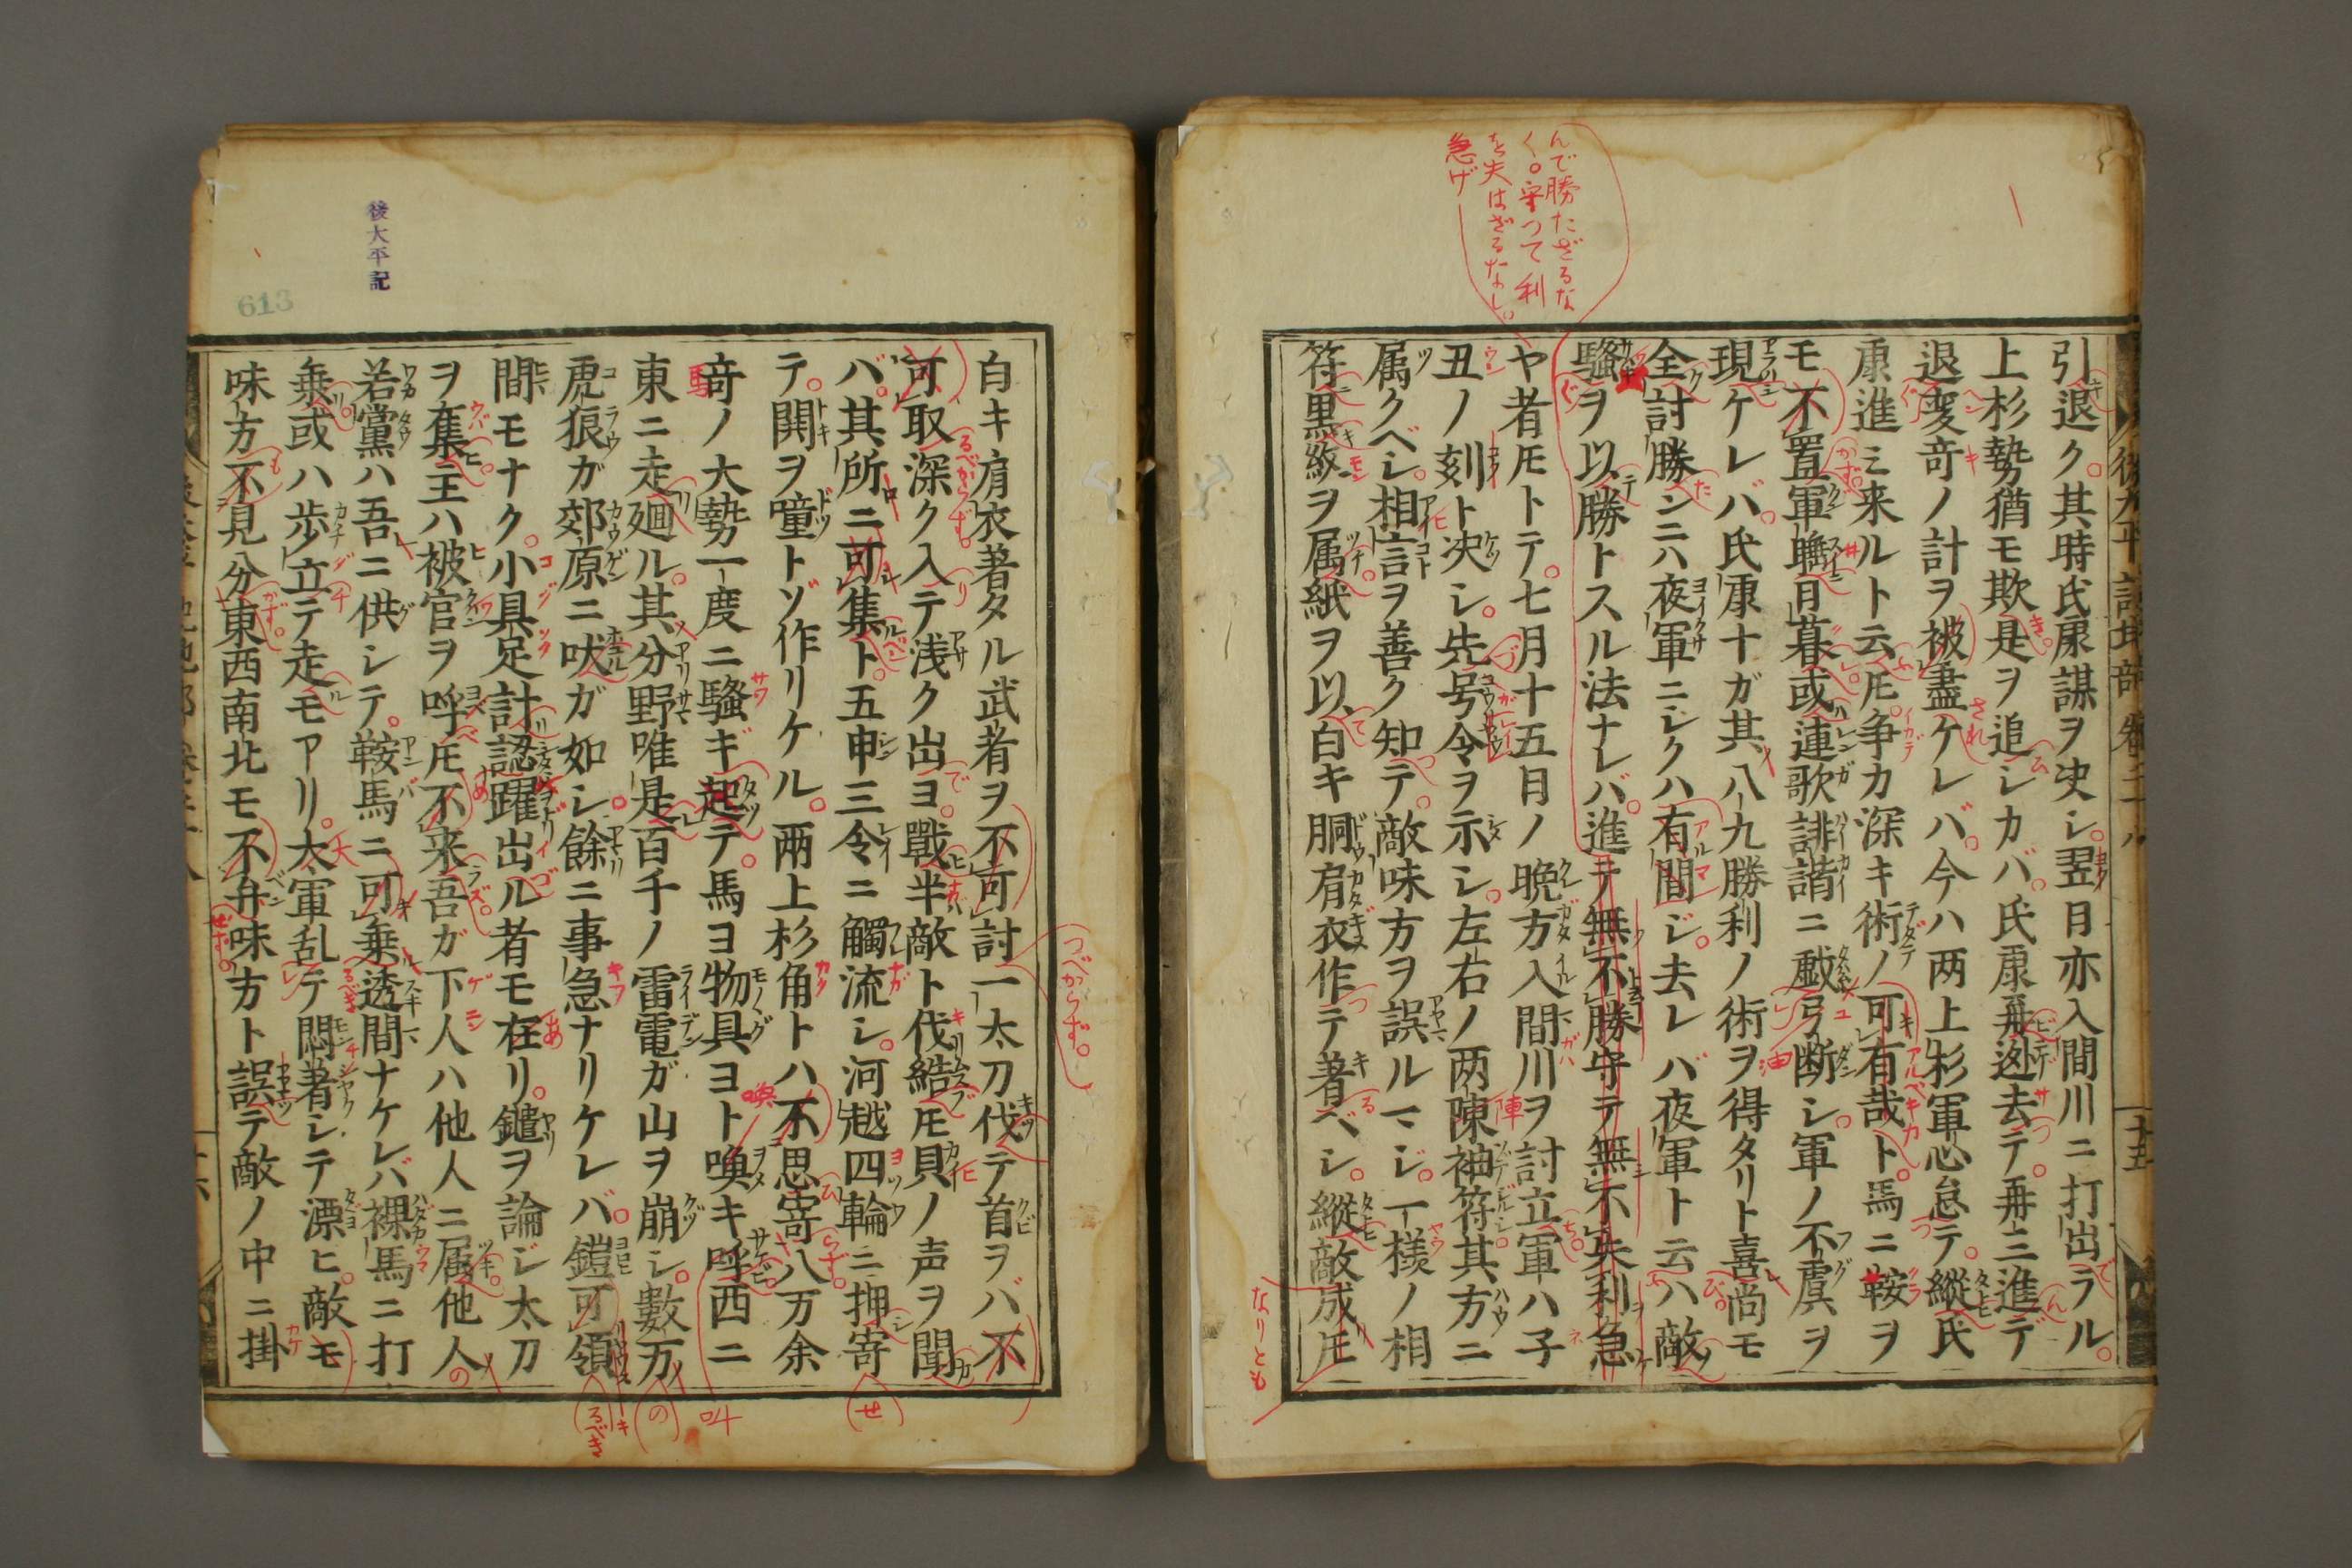 引退ク。其時氏康謀ヲ决シ。翌日亦入間川ニ打出ラル。
上杉勢猶モ欺是ヲ追シカバ。氏康再迯去テ。再三進デ
退変奇ノ計ヲ被盡ケレバ。今ハ两上杉軍心怠テ。縱氏
康進ミ来ルト云𪜈。争カ深キ術ノ可有哉ト。馬ニ鞍ヲ
モ不置軍聸日暮或連歌誹諧ニ戯弓断シ。軍ノ不虞ヲ
現ケレバ。氏康十ガ其八九勝利ノ術ヲ得タリト喜尚モ
全討勝ンニハ夜軍ニシクハ有間ジ。去レバ夜軍ト云ハ敵
騒ヲ以勝トスル法ナレバ。進テ無不勝守テ無不失利急
ヤ者𪜈トテ。七月十五日ノ晩方入間川ヲ討立軍ハ子
丑ノ刻ト决シ。先号令ヲ示シ。左右ノ两陳袖符其方ニ
属クベシ。相言ヲ善ク知テ。敵味方ヲ誤ルマジ。一様ノ相
符黒紙ヲ属紙ヲ以白キ胴肩衣作テ著ベシ。縱敵成𪜈
んで勝たざるな
く。守つて利
を失はざるなし。
急げ
なりとも
後太平記地部 卷二十八
十五
白キ肩衣著タル武者ヲ不可討一太刀伐テ首ヲバ不
可取深ク入テ浅ク出ヨ。戰半敵ト伐結𪜈貝ノ声ヲ聞
バ。其所ニ可集ト。五申三令ニ觸流シ。河越四輪ニ押寄
テ。鬨ヲ噇トゾ作リケル。两上杉角トハ不思寄八万余
竒ノ大勢一度ニ騒ギ起テ。馬ヨ物具ヨト喚キ呼西ニ
東ニ走廻ル。其分野唯是百千ノ雷電ガ山ヲ崩シ。數万
虎狼ガ郊原ニ吠ガ如シ。餘ニ事急ナリケレバ。鎧可領
間モナク。小具足計認躍出ル者モ在リ。鑓ヲ論ジ太刀
ヲ奪主ハ被官ヲ呼𪜈不来吾ガ下人ハ他人ニ属他人
若黨ハ吾ニ供シテ。鞍馬ニ可乗透間ナケレバ裸馬ニ打
乗或ハ歩立テ走モアリ。太軍乱テ悶著シテ漂ヒ。敵モ
味方不見分東西南北モ不弁味方ト誤テ敵ノ中ニ掛
つべからず。
後太平記
613